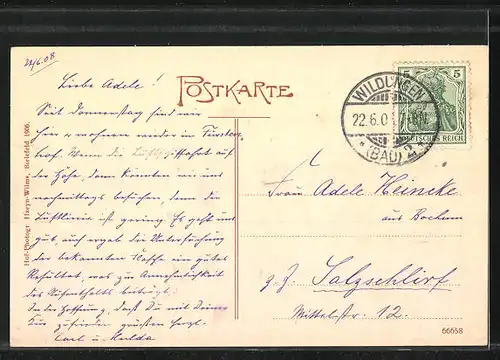 22/6.08
Liebe Adele!
Seit Donnerstag sind wir
hier u wohnen wieder im Fürsten-
hof. Wenn die Luftschiffahrt auf
der Höhe, dann könnten wir uns
nachmittags besuchen, denn die
Luftlinie ist gering. Es geht uns
gut, auch ergab die Untersuchung
der bekannten ein gutes
Resultat, was zur Annehmlichkeit
des Aufenthalts beiträgt.
In der Hoffnung, dass Du mit Deiner
Kur zufrieden grüssen herzl.
Carl u. Hulda
Hof-Photogr. Wilms, Bielefeld 1906.
POSTKARTE
WILDUNGEN
22.6.0
*(BAD) 2*
5 5
DEUTSCHES REICH
Frau Adele Heincke
aus Bochum
z. Z. Salzschlirf
Mittelstr. 12.
66658